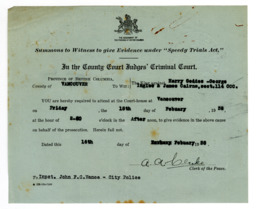 Summons to Witness to give Evidence under "Speedy Trials Act."
In the County Court Judges' Criminal Court.
PROVINCE OF BRITISH COLUMBIA,
COUNTY OF VANCOUVER
TO WIT:
Harry Geddes -George
Ingles & James Cairns, sect. 114 CCC.
YOU are hereby required to attend at the Court-house at Vancouver
on Friday the 19th of February
at the hour of o'clock in the After noon, to give evidence in the above cause
on behalf of the prosecution. Herein fail not.
Dated this 16th day of
Clerk of the Peace.
Inspt. John F.C. Vance - City Police